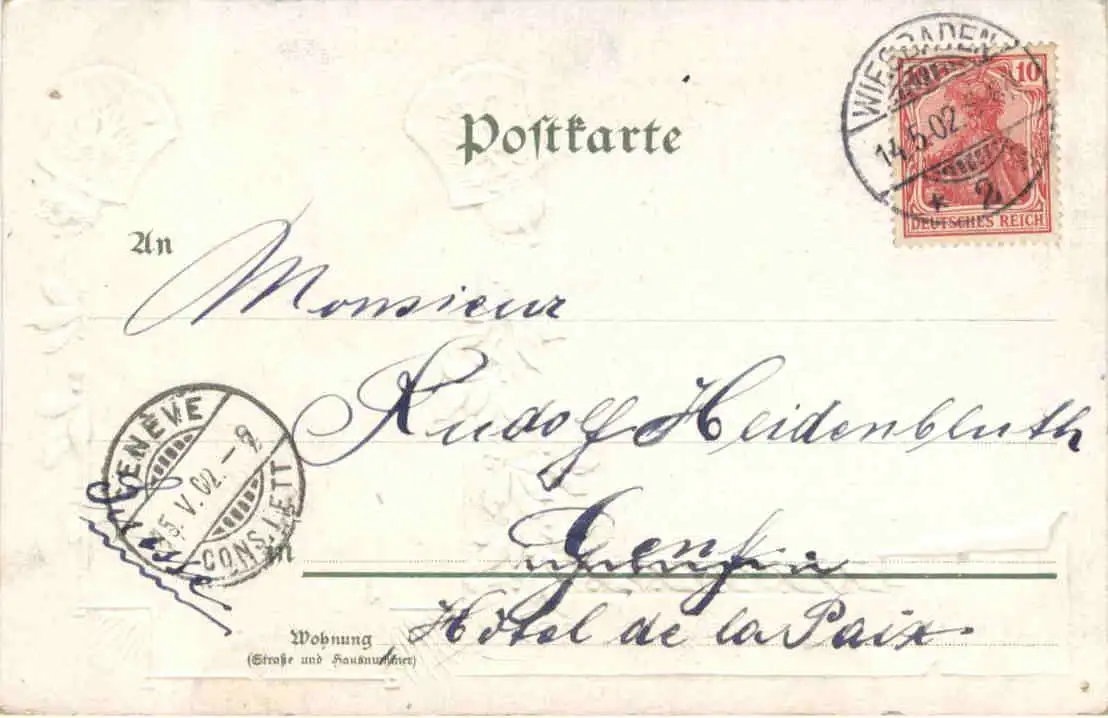 Postkarte
WIESBADEN
14.5.02
* 2
10
DEUTSCHES REICH
An
Monsieur
Rudolf Heidenbluth
GENÈVE
15.V.02.-9
CONS.LETT
in
Genf
Hôtel de la Paix.
Wohnung
(Straße und Hausnummer)